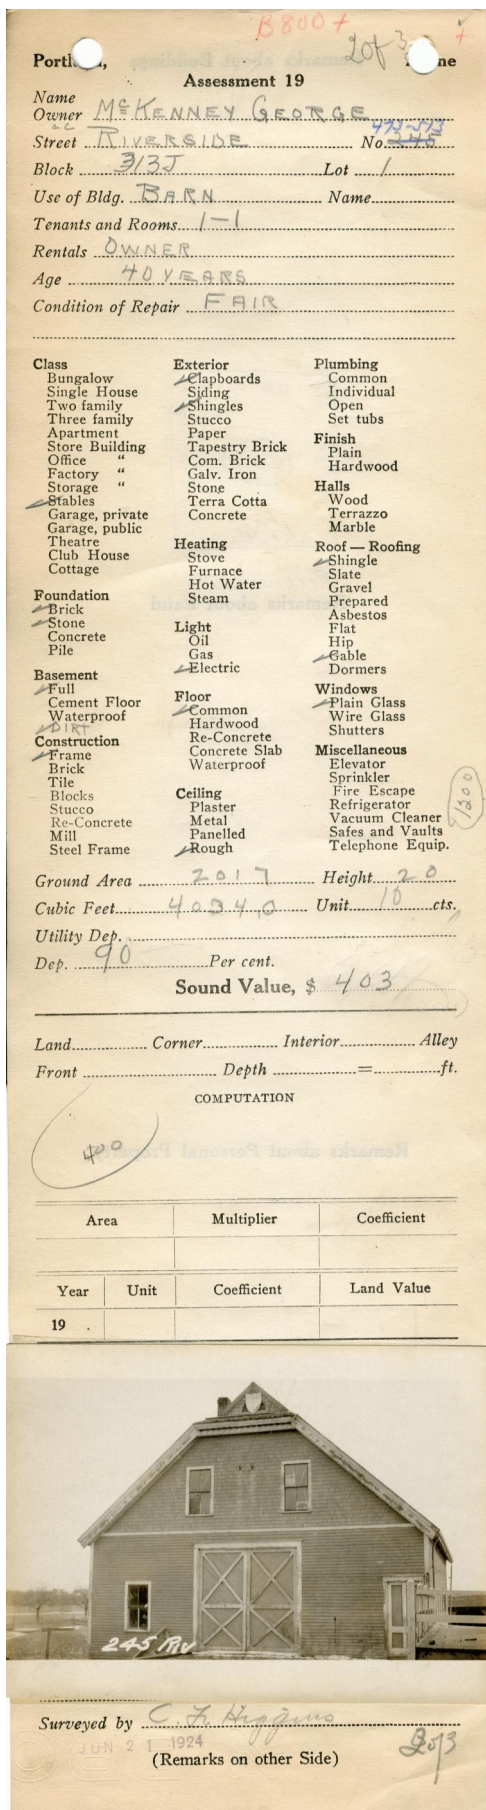 B800+
2 of 3
+
Portl , ne
Assessment 19
Name
Owner McKENNEY GEORGE
473-513
Street RIVERSIDE No. 245
Block 313J Lot 1
Use of Bldg. BARN Name
Tenants and Rooms 1-1
Rentals OWNER
Age 40 YEARS
Condition of Repair FAIR
Class
Bungalow
Single House
Two family
Three family
Apartment
Store Building
Office "
Factory "
Storage "
Stables
Garage, private
Garage, public
Theatre
Club House
Cottage
Foundation
Brick
Stone
Concrete
Pile
Basement
Full
Cement Floor
Waterproof
DIRT
Construction
Frame
Brick
Tile
Blocks
Stucco
Re-Concrete
Mill
Steel Frame
Exterior
Clapboards
Siding
Shingles
Stucco
Paper
Tapestry Brick
Com. Brick
Galv. Iron
Stone
Terra Cotta
Concrete
Heating
Stove
Furnace
Hot Water
Steam
Light
Oil
Gas
Electric
Floor
Common
Hardwood
Re-Concrete
Concrete Slab
Waterproof
Ceiling
Plaster
Metal
Panelled
Rough
Plumbing
Common
Individual
Open
Set tubs
Finish
Plain
Hardwood
Halls
Wood
Terrazzo
Marble
Roof — Roofing
Shingle
Slate
Gravel
Prepared
Asbestos
Flat
Hip
Gable
Dormers
Windows
Plain Glass
Wire Glass
Shutters
Miscellaneous
Elevator
Sprinkler
Fire Escape
Refrigerator
Vacuum Cleaner
Safes and Vaults
Telephone Equip.
1200
Ground Area 2017 Height 20
Cubic Feet 40340 Unit 10 cts.
Utility Dep.
Dep. 90 Per cent.
Sound Value, $ 403
Land Corner Interior Alley
Front Depth = ft.
COMPUTATION
400
Area Multiplier Coefficient
Year Unit Coefficient Land Value
19 .
245 Riv
Surveyed by C. F. Higgins
JUN 21 1924
(Remarks on other Side)
2 of 3